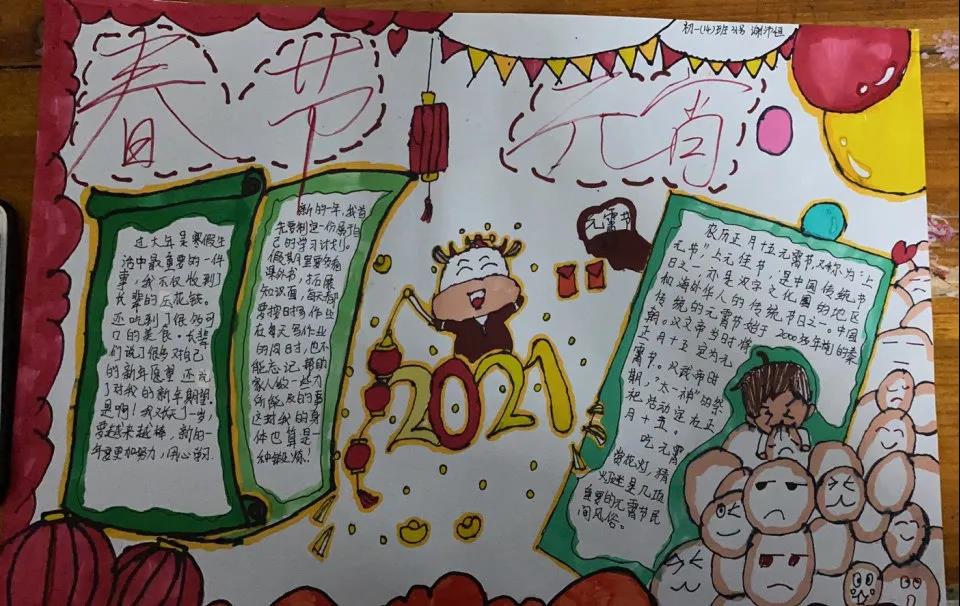 初一(4)班
春节
元宵
过大年是寒假生
活中最重要的一件
事,我不仅收到了
长辈的压岁钱。
还吃到了很多可
口的美食。长辈
们说了很多对自己
的新年愿望 还说
了对我的新年期望。
是啊!我又长了一岁,
要越来越棒,新的一
年要更加努力,用心学习.
新的一年,我首
先要制定一份属于自
己的学习计划。
假期里要多看
课外书,拓展
知识面,每天都
要按时写作业
在每天写作业
的同时,也不
能忘记帮助
家人做一些力
所能及的事
这对我的身
体也算是一
种锻炼!
2021
元宵节
农历正月十五元宵节,又称为"上
元节",上元佳节,是中国传统节
日之一,亦是汉字文化圈的地区
和海外华人的传统节日之一。中国
传统的元宵节始于2000多年前的秦
朝。汉文帝时
正月十五定为元
宵节。汉武帝时
期,"太一神"的祭
祀活动定在正
月十五。
吃元宵
赏花灯,猜
灯谜是几项
重要的元宵节民
间风俗。